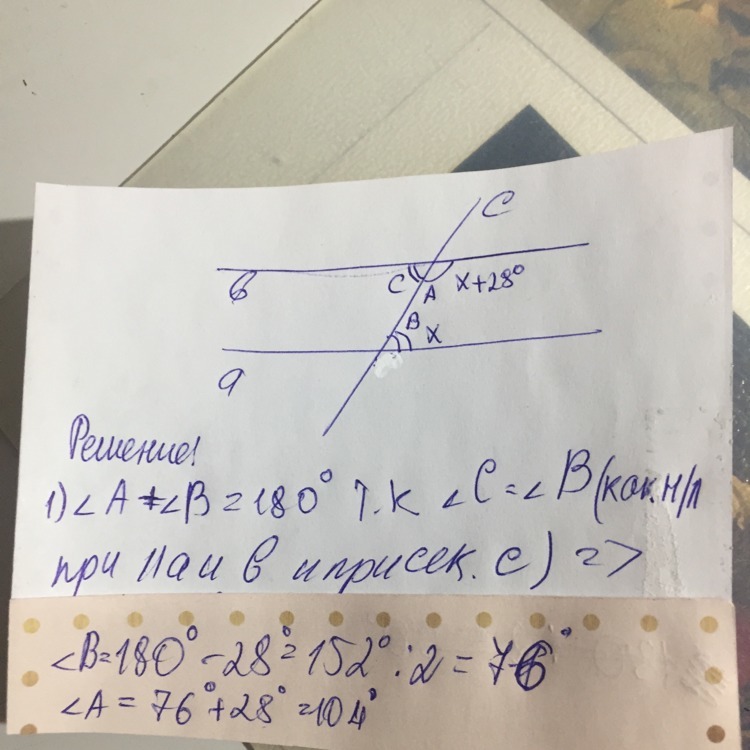 C
в
C
A
x+28°
B
x
а
Решение:
1) ∠A+∠B=180° т.к ∠C=∠B (как н/л
при || а и в и при сек. с) =>
∠B=180°-28°=152°:2=76°
∠A=76°+28°=104°